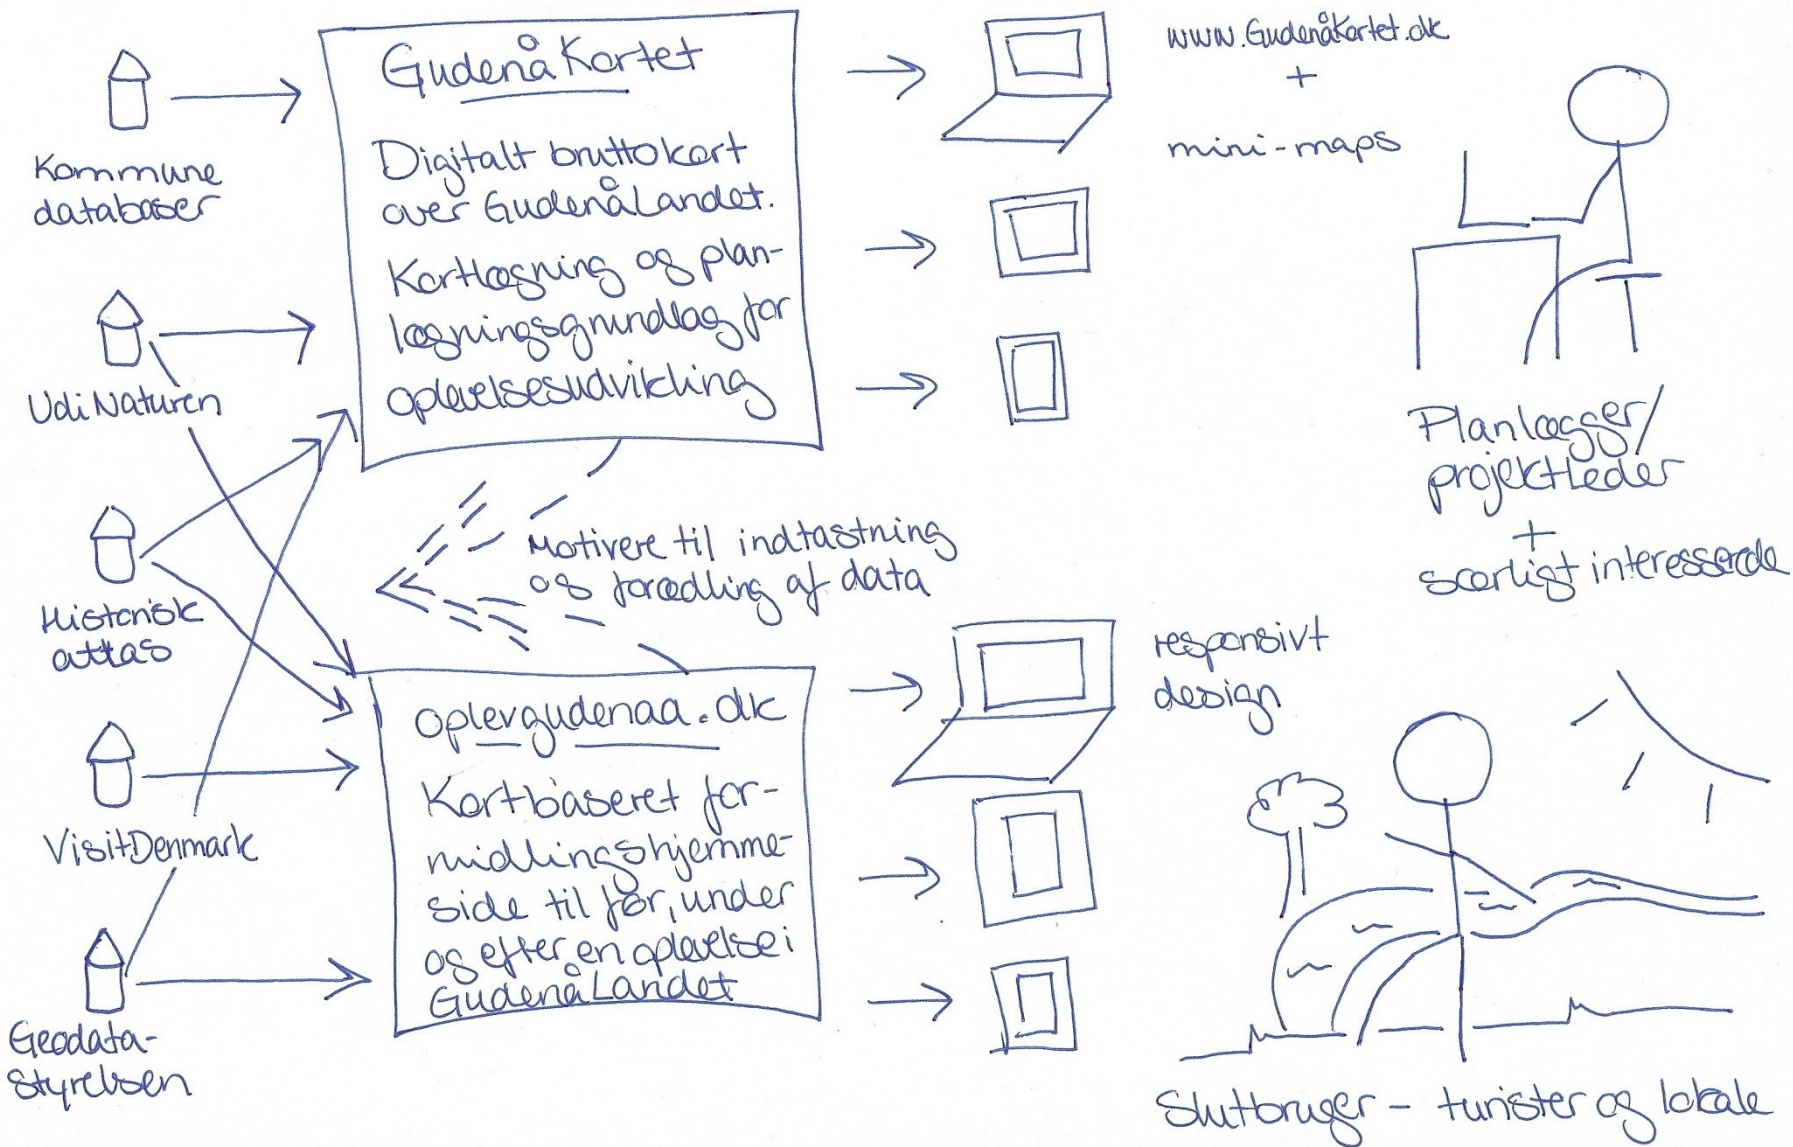 Kommune
databaser
UdiNaturen
Historisk
atlas
VisitDenmark
Geodata-
Styrelsen
GudenåKortet
Digitalt bruttokort
over GudenåLandet.
Kortlægning og plan-
lægningsgrundlag for
oplevelsesudvikling
Motivere til indtastning
og forædling af data
oplevgudenaa.dk
Kortbaseret for-
midlingshjemme-
side til før, under
og efter en oplevelse i
GudenåLandet
www.GudenåKortet.dk
+
mini-maps
Planlægger/
projektleder
+
særligt interesserede
responsivt
design
Slutbruger - turister og lokale